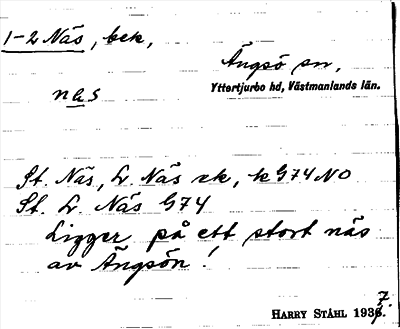 1-2 Näs, bek,
Ängsö sn,
Yttertjurbo hd, Västmanlands län.
nɑ̈s
St. Näs, L. Näs ek, k G74 NO
St. L. Näs G74
Ligger på ett stort näs
av Ängsön!
HARRY STÅHL 1937.